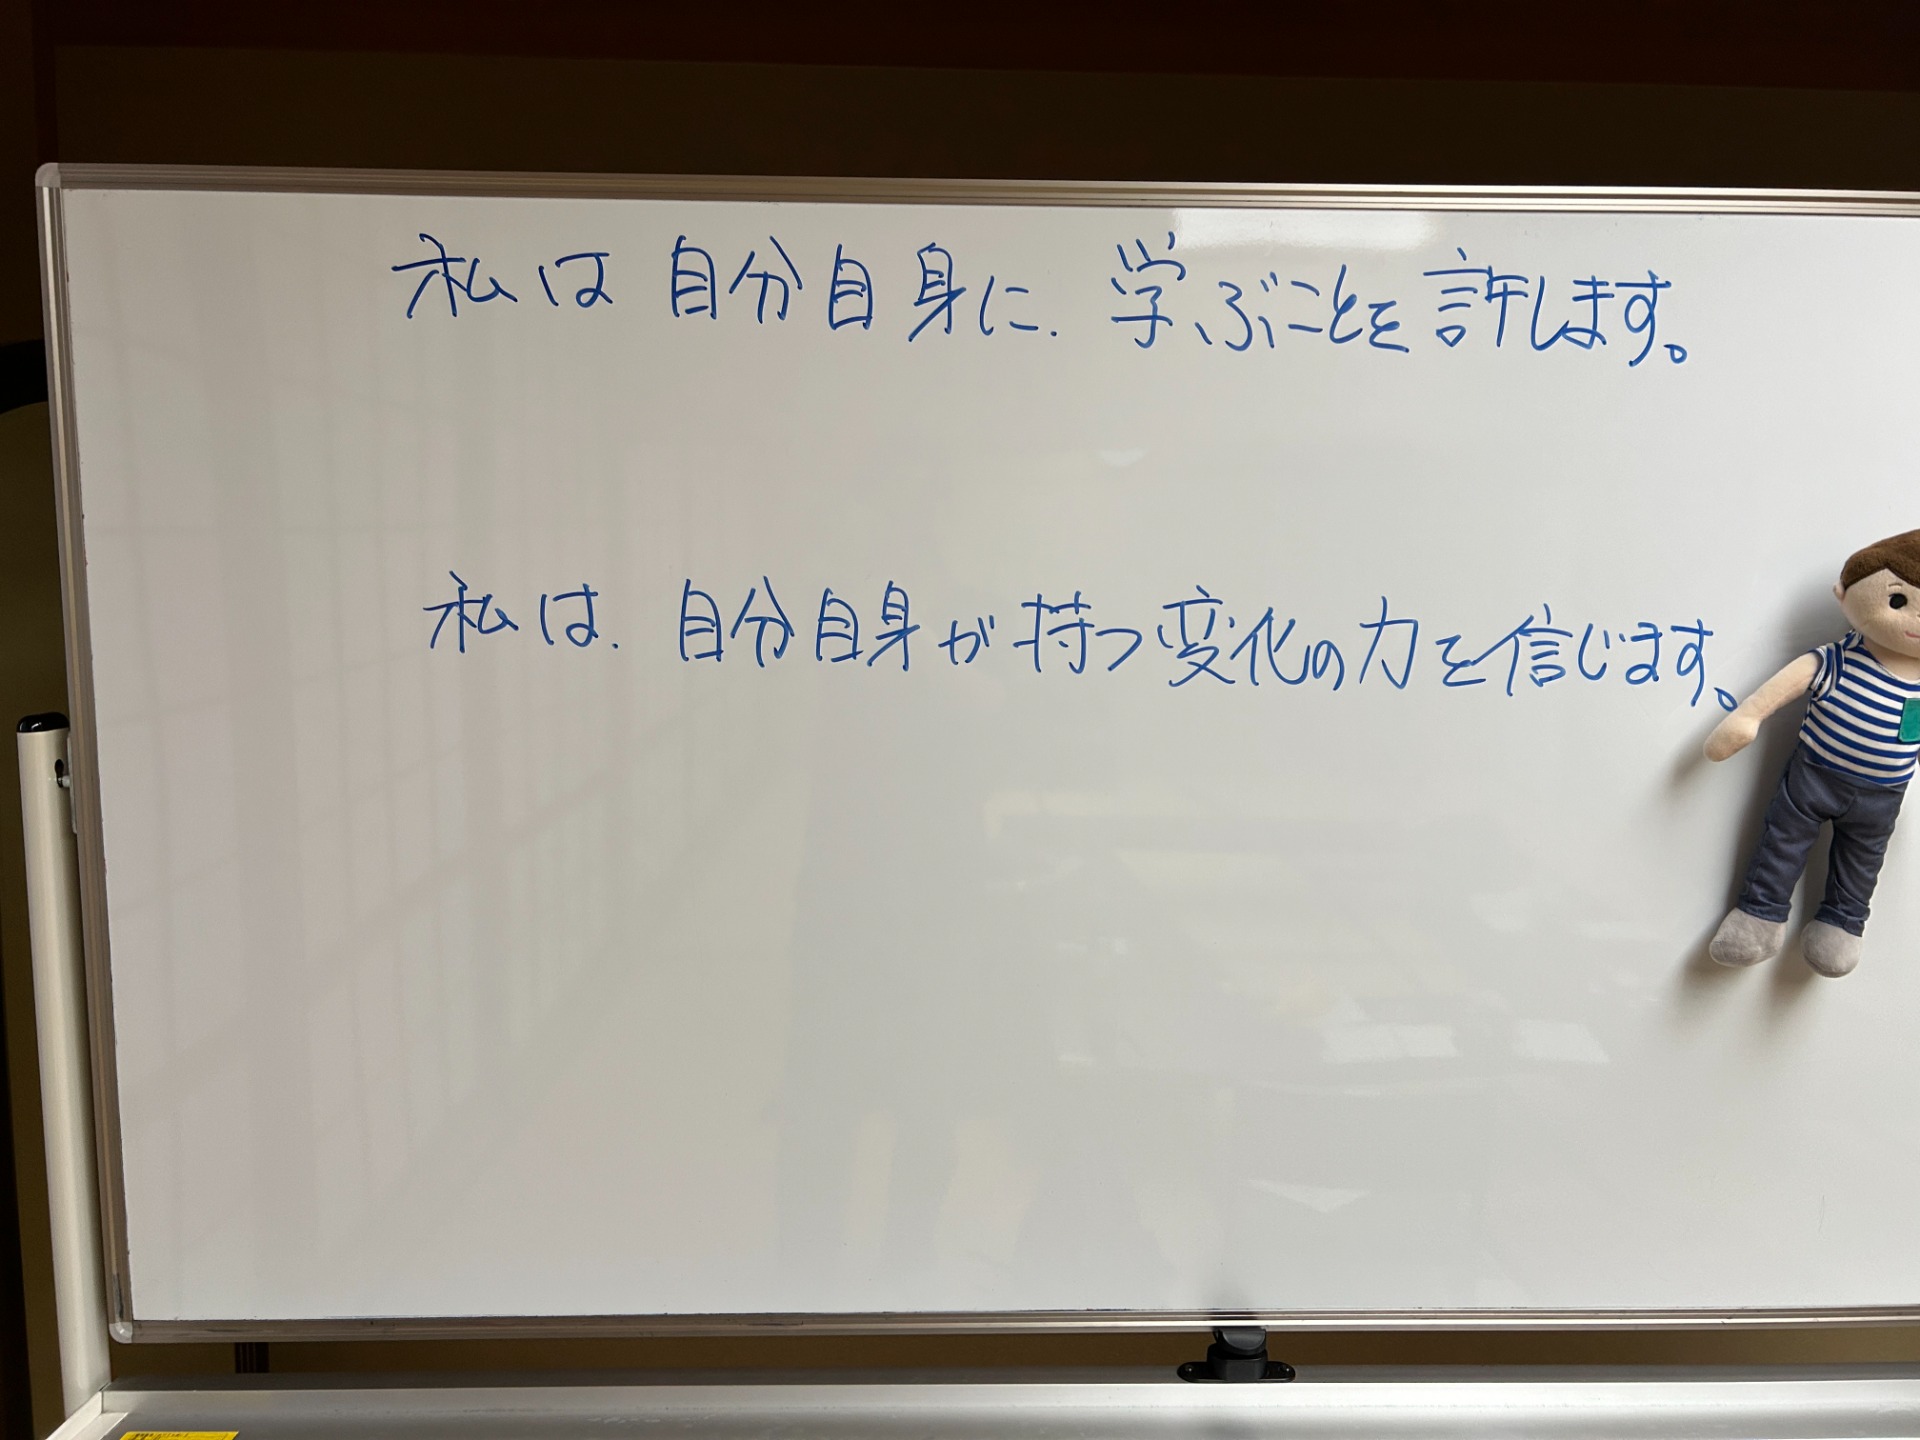 私は自分自身に、学ぶことを許します。
私は、自分自身が持つ変化の力を信じます。